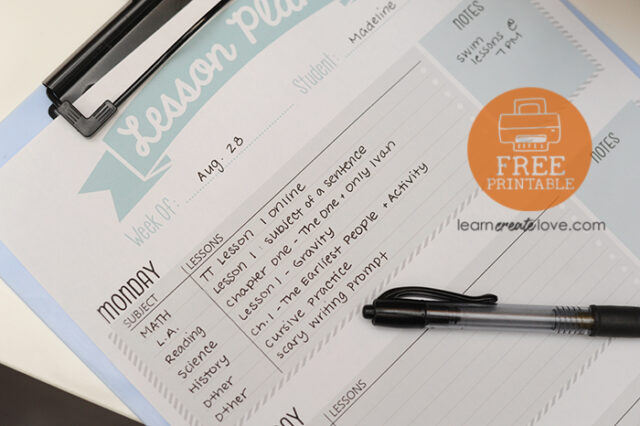 Lesson Plan
Student: Madeline
Week Of: Aug. 28
NOTES
swim
lessons @
7 PM
MONDAY
SUBJECT LESSONS
MATH TT Lesson 1 Online
L.A. Lesson 1: subject of a sentence
Reading Chapter One - The One + Only Ivan
Science Lesson 1 - Gravity
History Ch. 1 - The Earliest People + Activity
Other Cursive Practice
Other scary writing prompt
LESSONS
NOTES
FREE
PRINTABLE
learncreatelove.com